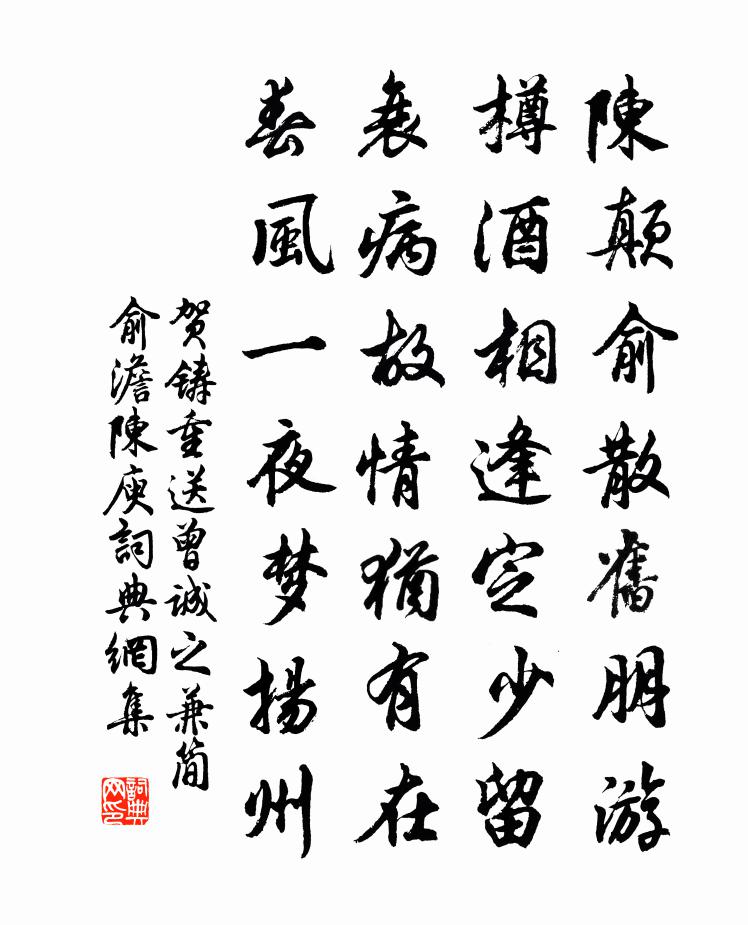 陳顛俞散舊朋游
樽酒相逢定少留
衰病故情猶有在
春風一夜梦揚州
贺鑄重送曾诚之兼简
俞澹陳庾詞典網集
詞典網印